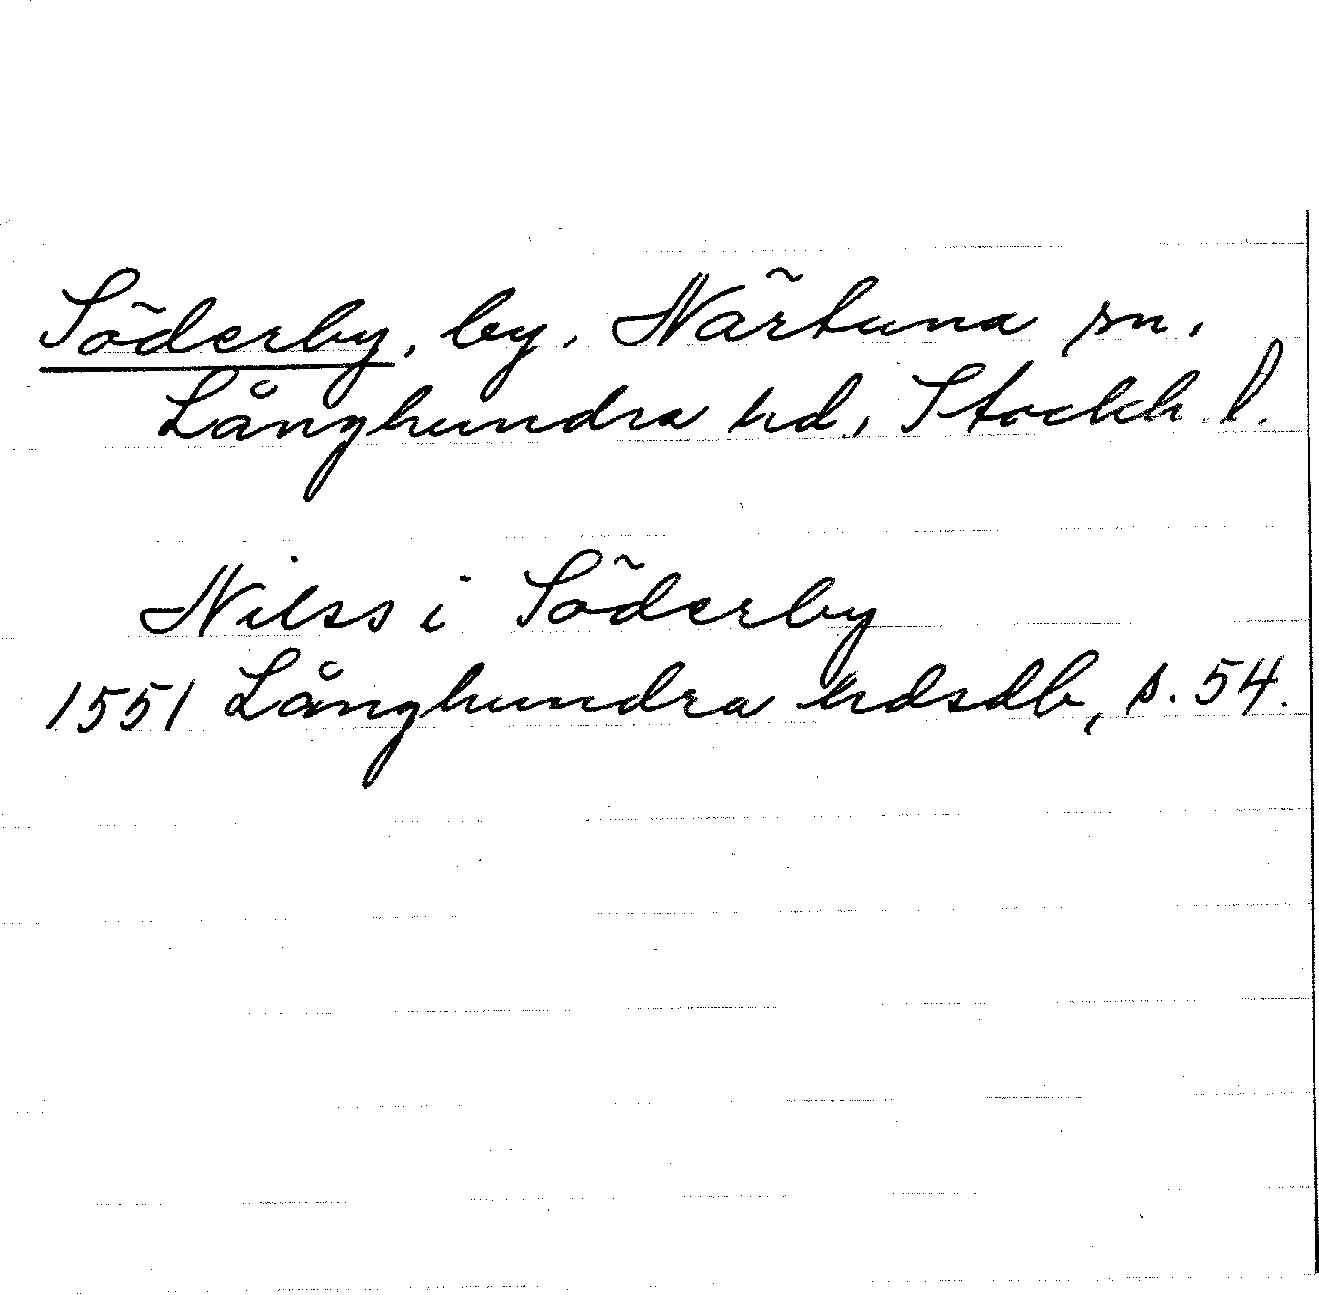 Söderby, by, Närtuna sn,
Långhundra hd, Stockh. l.
Nilss i Söderby
1551 Långhundra hdsdb, s. 54.